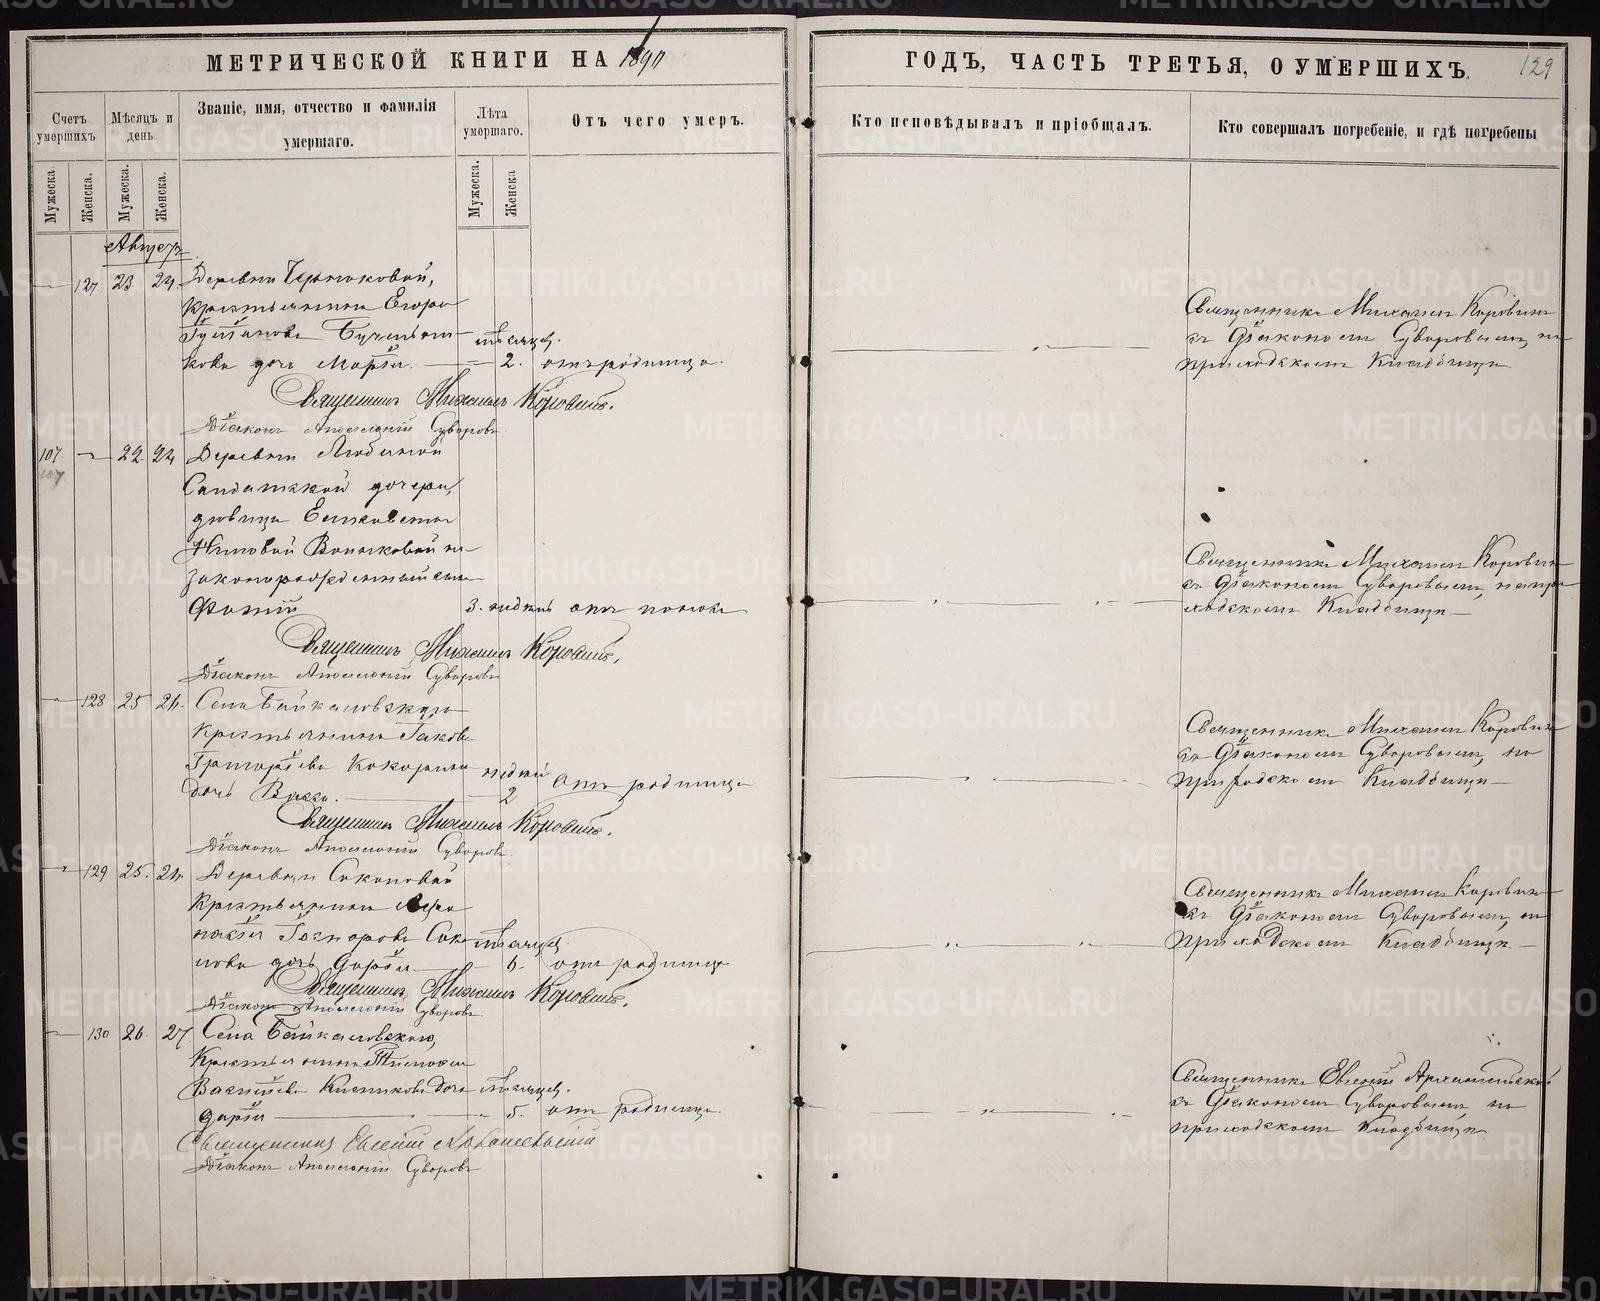 МЕТРИЧЕСКОЙ КНИГИ НА 1890
ГОДЪ, ЧАСТЬ ТРЕТЬЯ, О УМЕРШИХЪ.
129
Счетъ умершихъ
Мѣсяцъ и день.
Званіе, имя, отчество и фамилія умершаго.
Лѣта умершаго.
Отъ чего умеръ.
Кто исповѣдывалъ и пріобщалъ.
Кто совершалъ погребеніе, и гдѣ погребены
Мужеска.
Женска.
Мужеска.
Женска.
Мужеска.
Женска
Августъ
127. 23. 24. Деревни
крестьянина Егора
Бучельни-
мѣсяцев.
кова дочь Марѳа. 2. отъ родимца.
Священникъ Михаилъ Коровинъ
съ Діакономъ Суворовымъ, на
приходскомъ кладбищѣ
Священникъ Михаилъ Коровинъ.
Діаконъ Аполлоній Суворовъ
107 22. 24 Деревни Любиной
107
Солдатской дочери,
дѣвицы
незаконорожденный сынъ
Фотій 3. недѣль отъ поноса
Священникъ Михаилъ Коровинъ
съ Діакономъ Суворовымъ, на при-
ходскомъ кладбищѣ
Священникъ Михаилъ Коровинъ.
Діаконъ Аполлоній Суворовъ
128 25 26. Села Байкаловскаго
Крестьянина Іакова
Григорьева Кокорина недѣль
дочь Васса. 2 отъ родимца
Священникъ Михаилъ Коровинъ
съ Діакономъ Суворовымъ, на
приходскомъ кладбищѣ
Священникъ Михаилъ Коровинъ.
Діаконъ Аполлоній Суворовъ
129 25. Деревни Соколовой
Крестьянина Аѳа-
насія Соко- мѣсяцев.
лова дочь Дарія. 6. отъ родимца
Священникъ Михаилъ Коровинъ
съ Діакономъ Суворовымъ, на
приходскомъ кладбищѣ
Священникъ Михаилъ Коровинъ.
Діаконъ Аполлоній Суворовъ
130 26. 27. Села Байкаловскаго,
Крестьянина Тимоѳея
дочь мѣсяцев.
Дарія 5. отъ родимца.
Священникъ Евгеній
съ Діакономъ Суворовымъ, на
приходскомъ кладбищѣ
Священникъ Евгеній
Діаконъ Аполлоній Суворовъ
METRIKI.GASO-URAL.RU